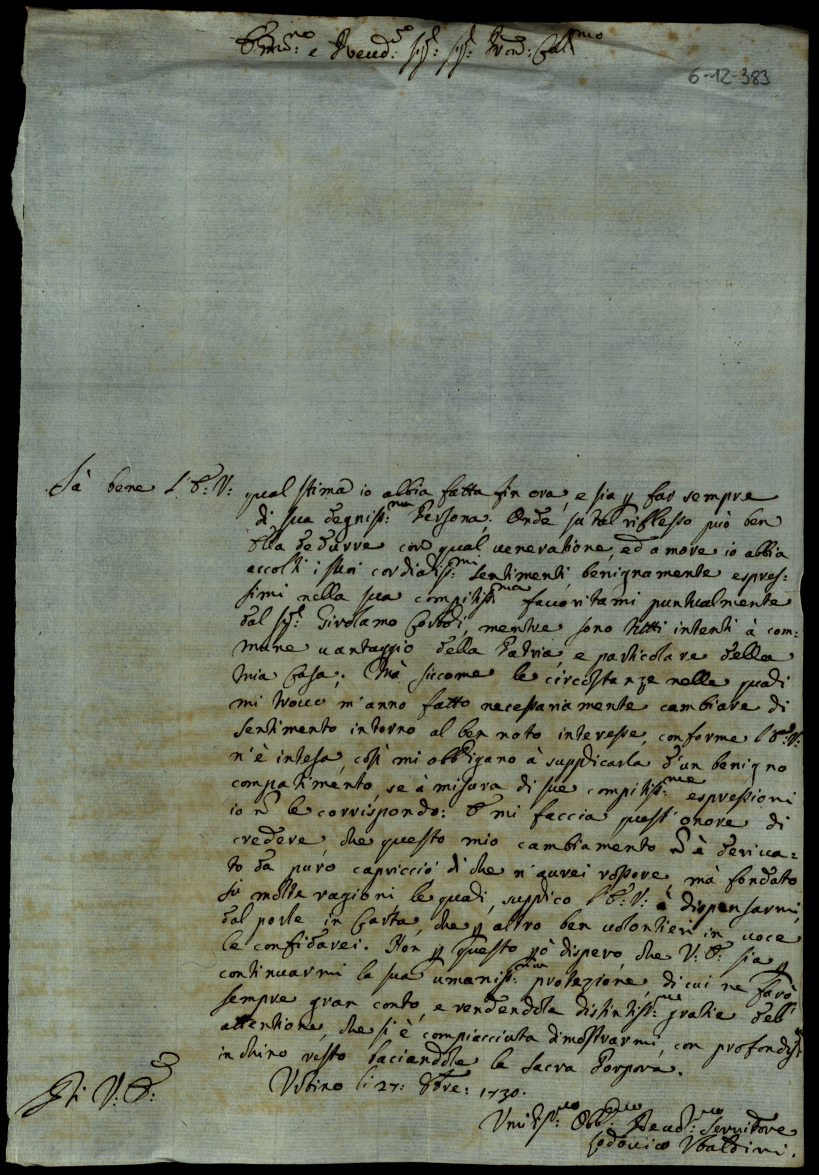 Em:mo e Reved:mo Sig: Sig: Pron: Col:mo
6-12-383
Sà bene l'E: V: qual stima io abbia fatta fin ora, e sia p far sempre
di sua degniss:ma Persona; Onde su tal riflesso può ben
Ella dedurre con qual veneratione, ed amore io abbia
accolti i suoi cordialiss:mi sentimenti, benignamente espres=
simi nella sua compitiss:ma favoritami puntualmente
dal Sig: Girolamo Corboli, mentre sono tutti intenti à com=
mune vantaggio della Patria, e particolare della
mia Casa; Mà siccome le circostanze nelle quali
mi trovo m'anno fatto necessariamente cambiare di
sentimento intorno al ben noto interesse, conforme l'E: V:
n'è intesa, così mi obbligano à supplicarla d'un benigno
compatimento, se à misura di sue compitiss:me espressioni
io ñ le corrispondo: E mi faccia quest'onore di
credere, che questo mio cambiamento ñ è deriva=
to da puro capriccio di che n'aurei rossore, mà fondato
sù molte ragioni le quali, supplico l'E: V: à dispensarmi
dal porle in Carta, che p altro ben volontieri in voce
le confidarei. Non p questo pò dispero, che V: E: sia p
continuarmi la sua umaniss:ma protezione, di cui ne farò
sempre gran conto, e rendendole distintiss:me gratie dell'
attentione, che si è compiacciuta dimostrarmi, con profondiss:
inchino resto baciandole la Sacra Porpora.
Di V: E: Urbino li 27: 8bre: 1730.
Umiliss:mo Obb:mo Devot:mo Servitore
Lodovico Ubaldini.